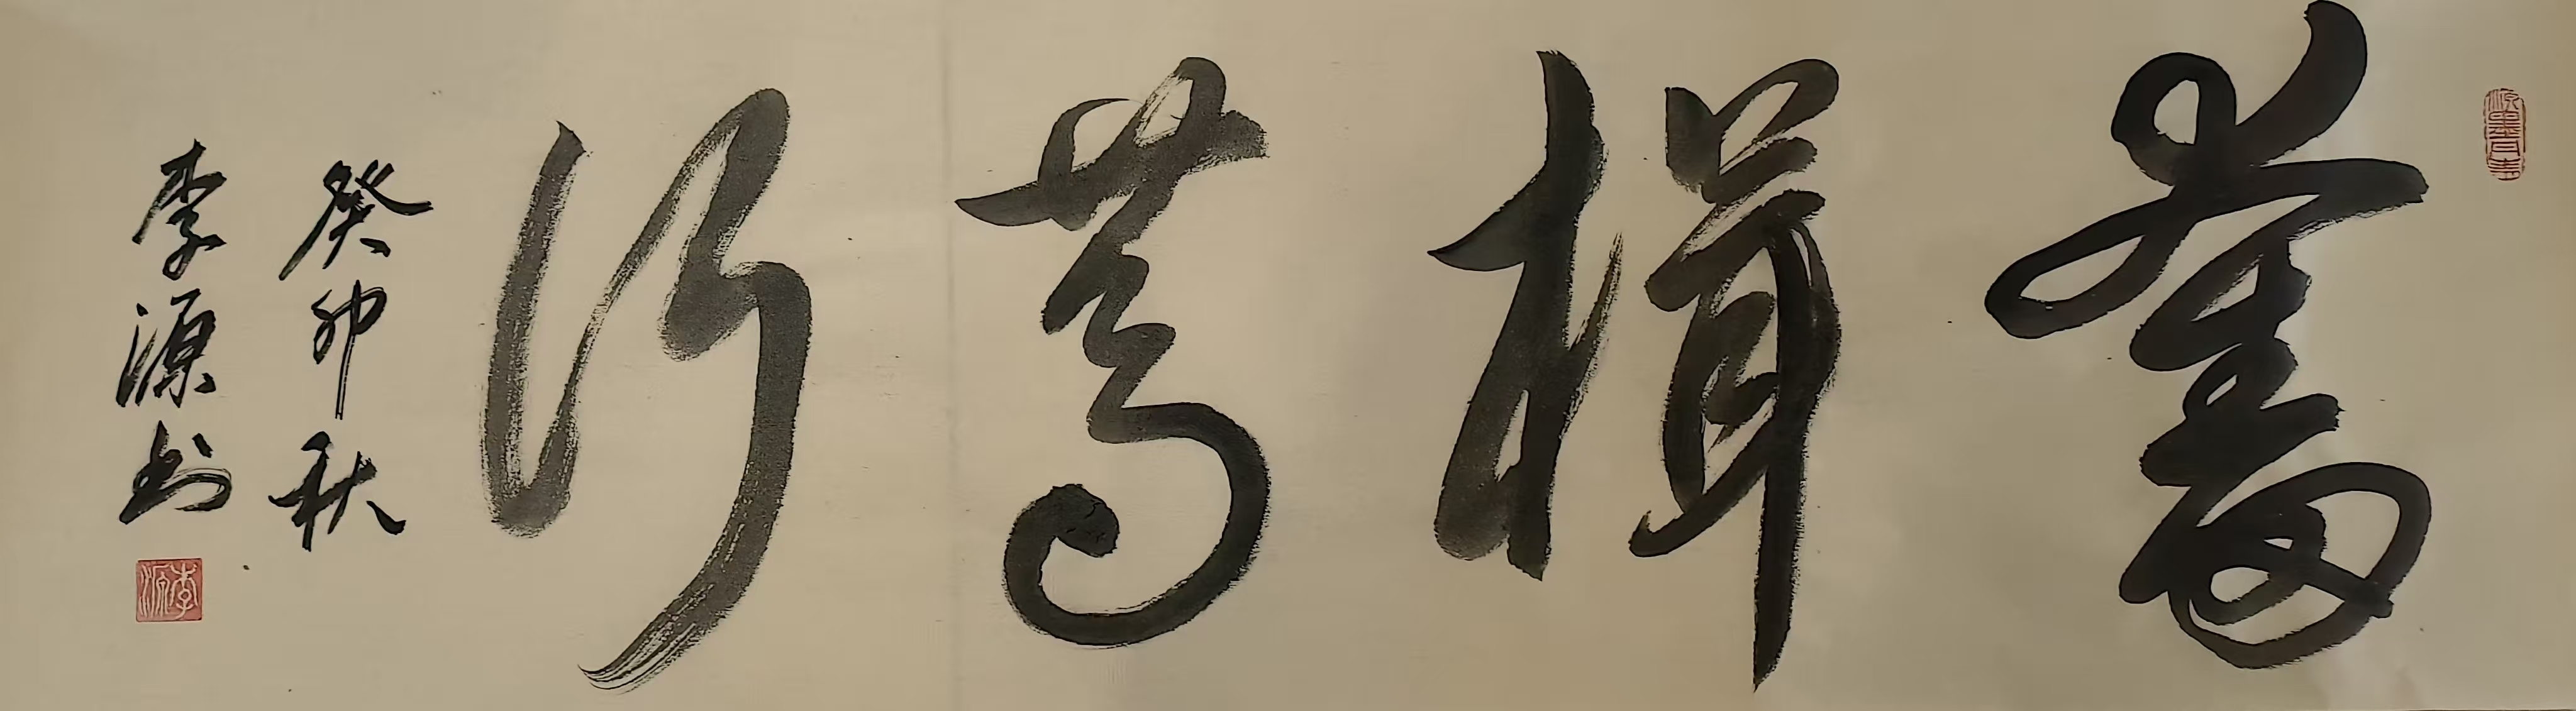 奮楫篤行
癸卯秋
李源书
李源